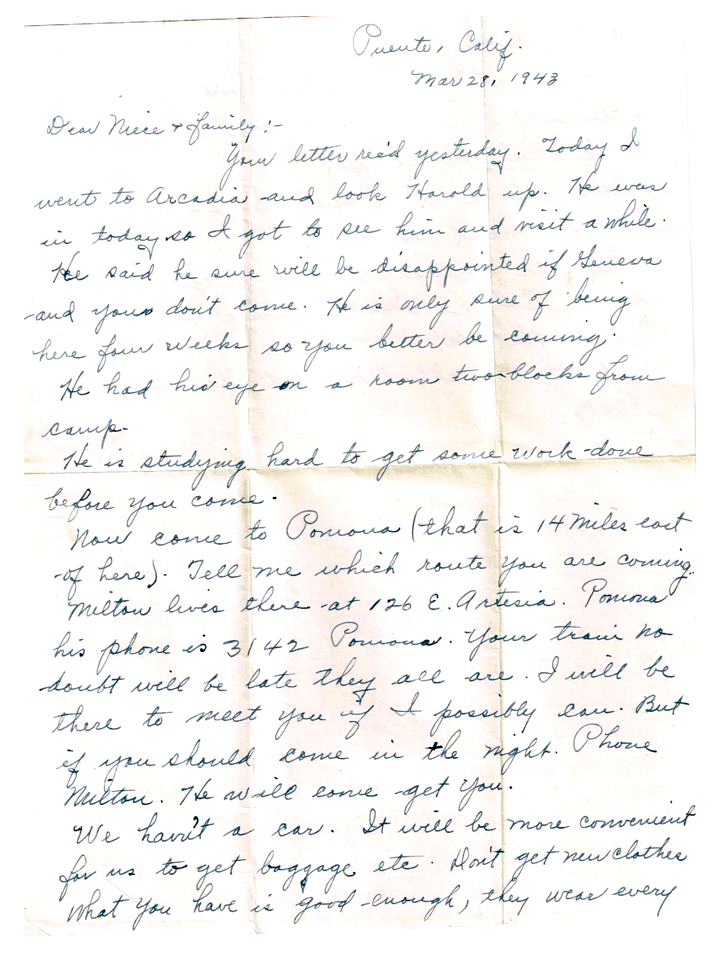 Puente, Calif.
Mar 28, 1943
Dear Niece & family:-
Your letter rec'd yesterday. Today I
went to Arcadia and look Harold up. He was
in today so I got to see him and visit a while.
He said he sure will be disappointed if Geneva
and you don't come. He is only sure of being
here four weeks so you better be coming.
He had his eye on a room two blocks from
camp.
He is studying hard to get some work done
before you come.
Now come to Pomona (that is 14 miles east
of here). Tell me which route you are coming.
Milton lives there at 126 E. Artesia. Pomona
his phone is 3142 Pomona. Your train no
doubt will be late they all are. I will be
there to meet you if I possibly can. But
if you should come in the night. Phone
Milton. He will come get you.
We havn't a car. It will be more convenient
for us to get baggage etc. Don't get new clothes
what you have is good enough, they wear every